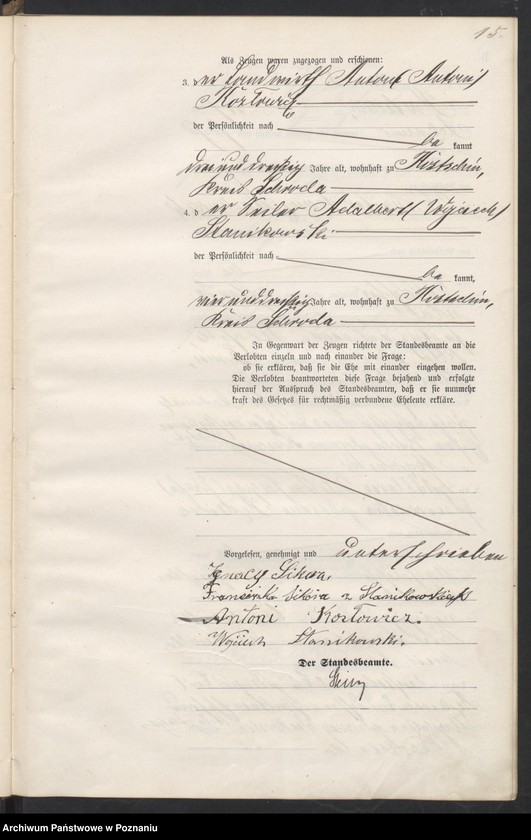 15.
Als Zeugen waren zugezogen und erschienen:
3. der Landwirth Anton Antoni
Kozłowicz
der Persönlichkeit nach
be kannt
dreiunddreißig Jahre alt, wohnhaft zu
Kreis Schroda
4. der Seiler Adalbert Wojciech
Stanikowski
der Persönlichkeit nach
be kannt,
vierunddreißig Jahre alt, wohnhaft zu
Kreis Schroda
In Gegenwart der Zeugen richtete der Standesbeamte an die
Verlobten einzeln und nach einander die Frage:
ob sie erklären, daß sie die Ehe mit einander eingehen wollen.
Die Verlobten beantworteten diese Frage bejahend und erfolgte
hierauf der Ausspruch des Standesbeamten, daß er sie nunmehr
kraft des Gesetzes für rechtmäßig verbundene Eheleute erkläre.
Vorgelesen, genehmigt und unterschrieben
Ignacy Sikora.
Franciszka Sikora z Stanikowskich
Antoni Kozłowicz.
Wojciech Stanikowski.
Der Standesbeamte.
Archiwum Państwowe w Poznaniu